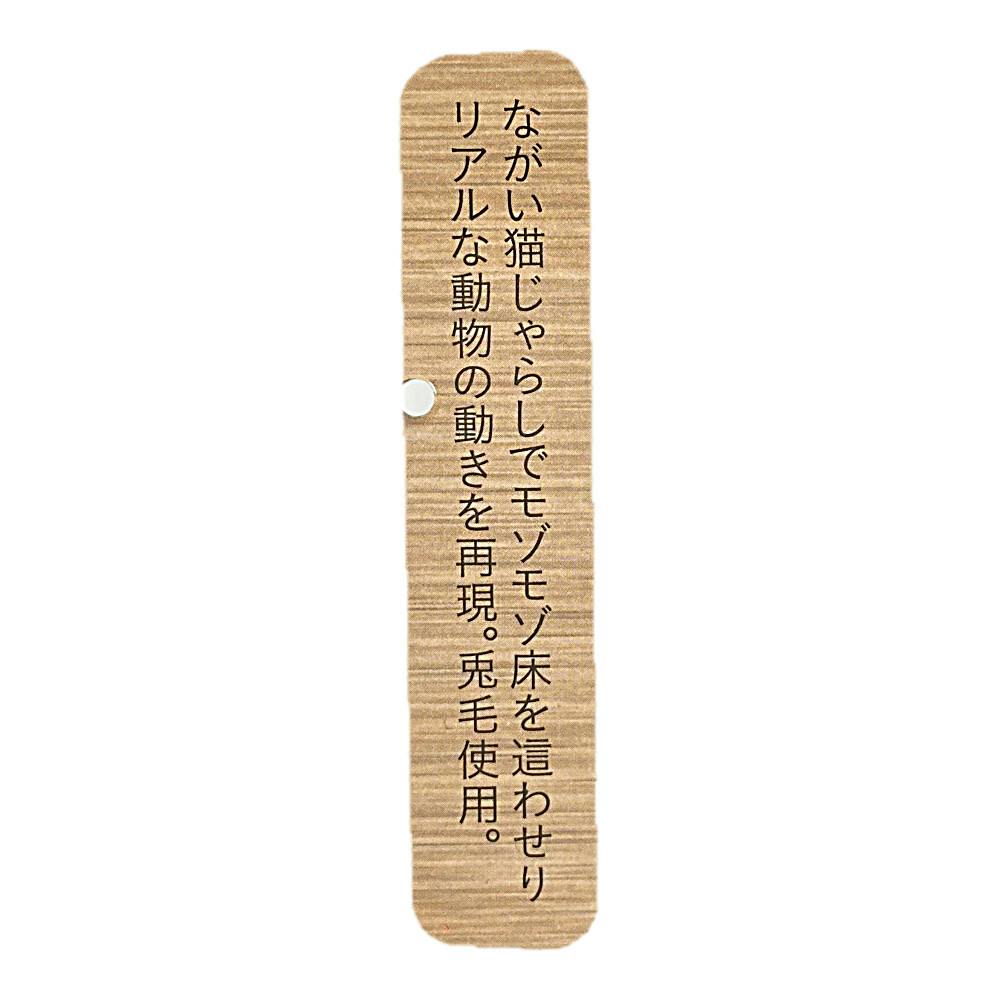 ながい猫じゃらしでモゾモゾ床を這わせり
リアルな動物の動きを再現。兎毛使用。